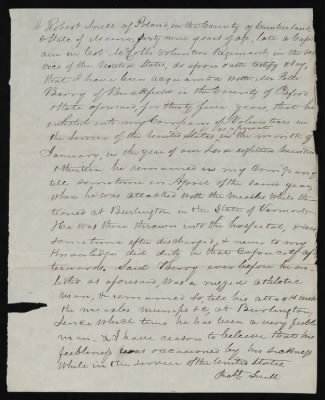 I Robert Snell of Poland in the County of Cumberland
& State of Maine, fifty nine years of age, late a Capt
ain in Col. McCobb's Volunteer Regiment, in the ser
vice of the United States, do upon oath testify & say,
that I have been acquainted with
Berry of Buckfield in the County of Oxford
& State aforesaid, for thirty five years, that he
enlisted into my Company of Volunteers in
the service of the United States in the month of
January, in the year of our Lord eighteen hundred
& thirteen he remained in my Company
till sometime in April of the same year,
when he was attacked with the measles while sta
tioned at Burlington in the State of Vermont.
He was there thrown into the hospital, & was
sometime after discharged, & never to my
knowledge did duty in that capacity af
terwards. Said Berry ever before he en
listed as aforesaid, was a rugged athletic
man, & remained so, till his attack with
the measles, mumps &c, at Burlington,
Since which time he has been a very feeble
man. & I have reason to believe that his
feebleness was occasioned by his sickness
while in the service of the United States.
Robt. Snell